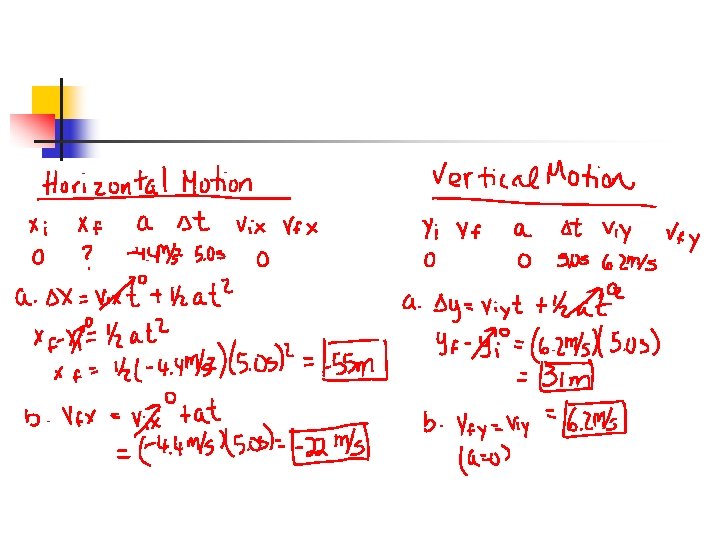 Horizontal Motion
xi xf a Δt vix vfx
0 ? -4.4m/s² 5.0s 0
a. Δx = vixt⁰ + 1/2 at²
xf-xi⁰ = 1/2 at²
xf = 1/2(-4.4m/s²)(5.0s)² = -55m
b. Vfx = vix⁰ + at
= (-4.4m/s)(5.0s) = -22 m/s
Vertical Motion
yi yf a Δt viy vfy
0 0 5.0s 6.2m/s
a. Δy = viyt + 1/2at² 0
yf - yi⁰ = (6.2m/s)(5.0s)
= 31m
b. Vfy = viy = 6.2m/s
(a=0)